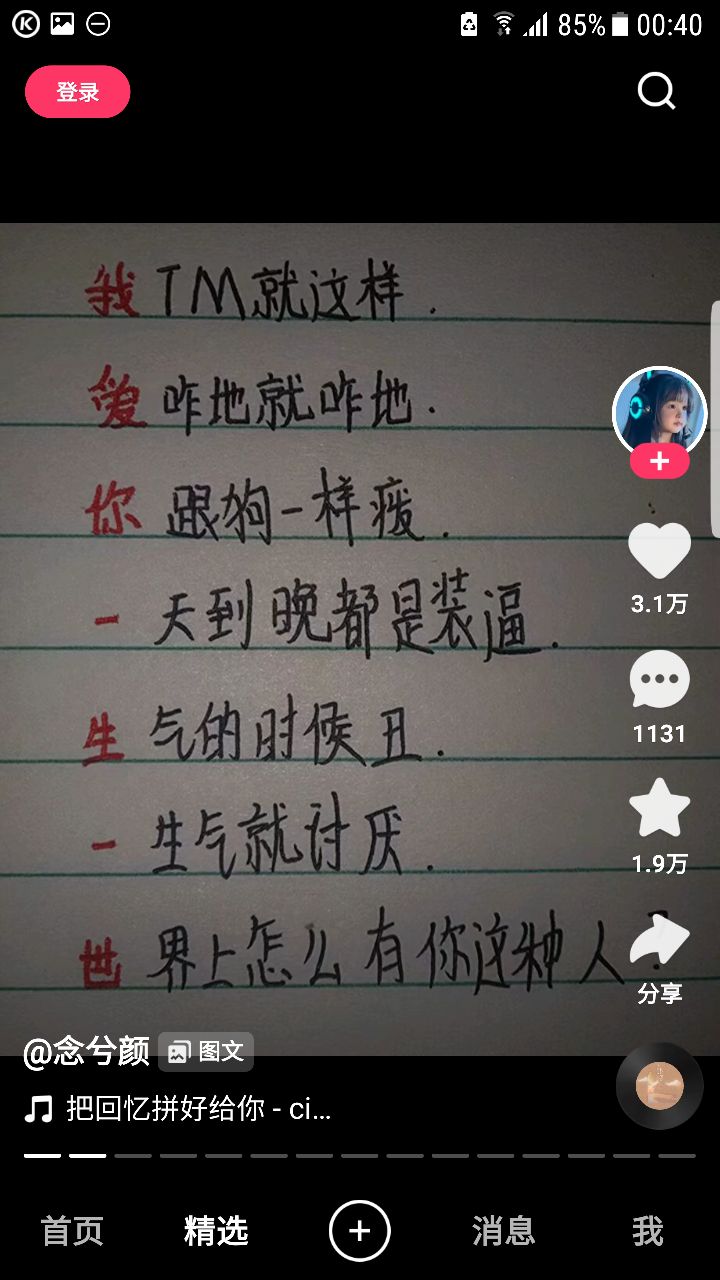 85% 00:40
登录
我TM就这样.
爱咋地就咋地.
你跟狗一样疲.
一天到晚都是装逼.
生气的时候丑.
一生气就讨厌.
世界上怎么有你这种人?
3.1万
1131
1.9万
分享
@念兮颜 图文
把回忆拼好给你 - ci...
首页 精选 消息 我